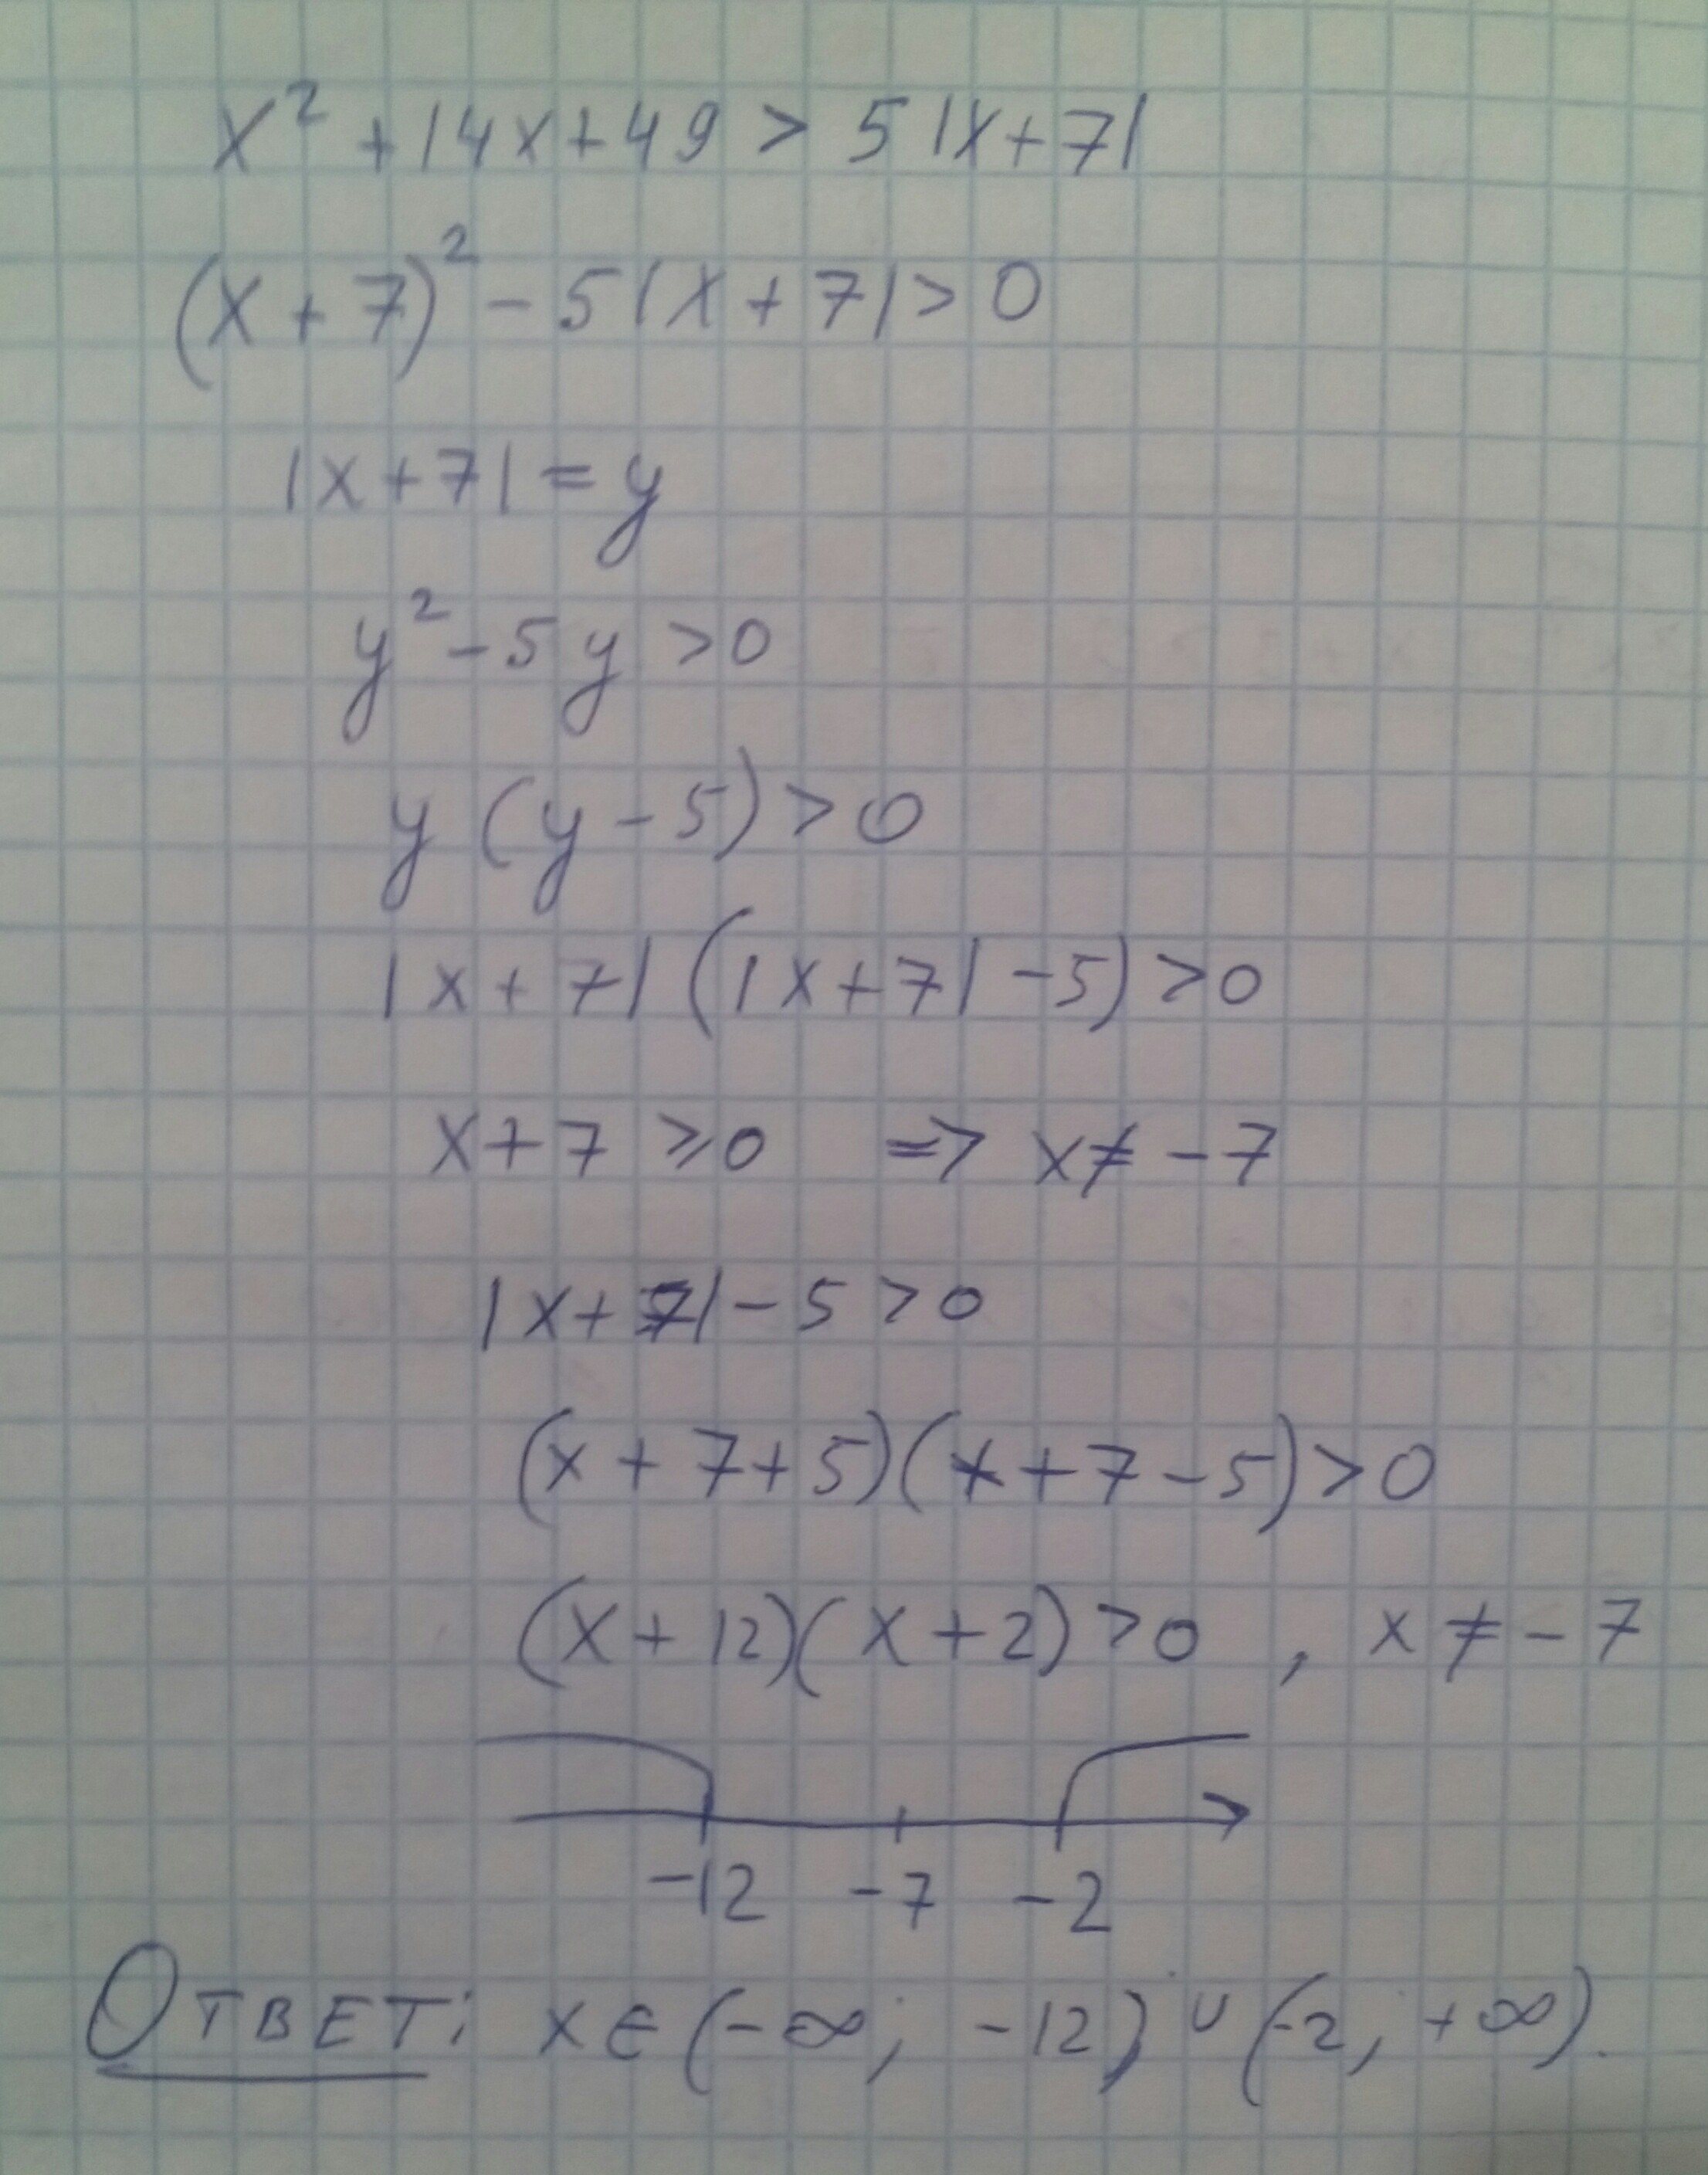 x² + 14x + 49 > 5 |x + 7|
(x + 7)² - 5 |x + 7| > 0
|x + 7| = y
y² - 5y > 0
y (y - 5) > 0
|x + 7| (|x + 7| - 5) > 0
x + 7 ⩾ 0 => x ≠ - 7
|x + 7| - 5 > 0
(x + 7 + 5)(x + 7 - 5) > 0
(x + 12)(x + 2) > 0 , x ≠ - 7
-12 -7 -2
Ответ: x ∈ (- ∞; -12) ∪ (-2; + ∞).